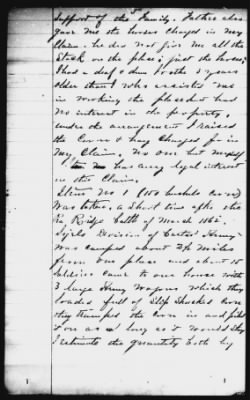 support of the Family. Father also
gave me the horses charged in my
Claim. he did not give me all the
Stock on the place; just the horses;
I had a deaf & dum brother 3 years
older than I who assisted me
in working the place but had
no interest in the property,
under the arrangement I raised
the Corn & hay Charged for in
my Claim, No one but myself
has any legal interest
in this Claim.
Item No 1 (150 bushels corn)
Was taken, a short time after the
Pea Ridge battle of March 1862.
Sigels Division of Curtis' Army
was camped about 2½ miles
from our place and about 15
Soldiers came to our house with
3 large Army Wagons which they
loaded full of Slip Shucked Corn
they tramped the corn in and piled
it on as long as it would stay
I estimate the quantity both by